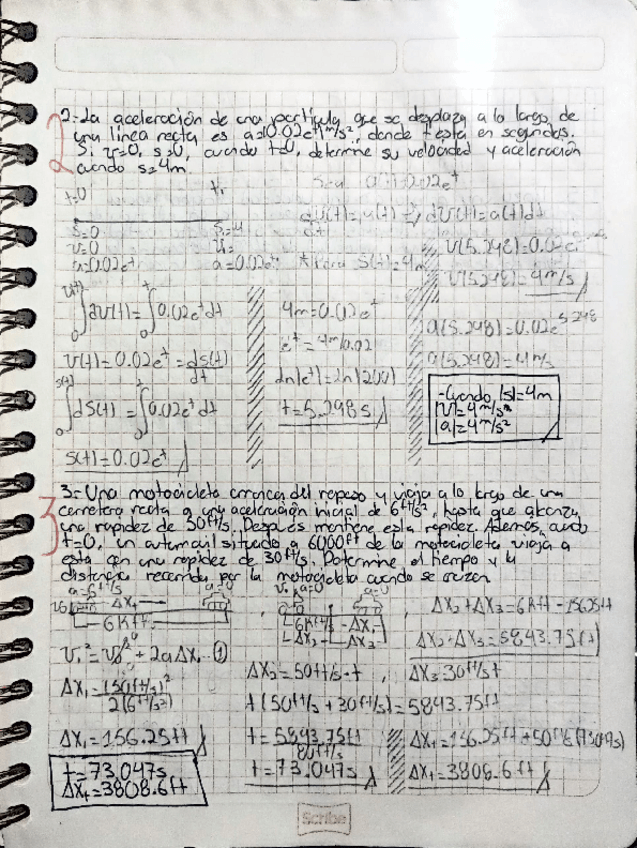 2.- La aceleración de una partícula que se desplaza a lo largo de
una línea recta es a=(0.02e^t) m/s², donde t está en segundos.
Si v=0, s=0, cuando t=0, determine su velocidad y aceleración
cuando s=4m.
t=0
s=0
v=0
a=0.02e^t
*Para s(t)=4m
dv(t)=a(t)dt
∫dv(t)=∫0.02e^t dt
v(t)=0.02e^t=ds(t)/dt
∫ds(t)=∫0.02e^t dt
s(t)=0.02e^t
4m=0.02e^t
e^t=4m/0.02
ln(e^t)=ln(200)
t=5.298s
v(5.298)=4m/s
a(5.298)=0.02e^5.298
-Cuando |s|=4m
|a|=4m/s²
3.- Una motocicleta arranca del reposo y viaja a lo largo de una
carretera recta a una aceleración inicial de 6ft/s², hasta que alcanza
una rapidez de 50ft/s. Después mantiene esta rapidez. Además, cuando
t=0, un automóvil situado a 6000ft de la motocicleta viaja a
esta con una rapidez de 30ft/s. Determine el tiempo y la
distancia recorrida por la motocicleta cuando se cruzan
a=6ft/s²
ΔX₁
6Kft
a=0
6Kft - ΔX₁
ΔX₂
ΔX₃
ΔX₂+ΔX₃=6Kft-156.25ft
ΔX₂+ΔX₃=5843.75ft
v₁²=v₀²+2aΔX₁ ①
ΔX₁=(50ft/s)²/2(6ft/s²)
ΔX₁=156.25ft
ΔX₂=50ft/s·t, ΔX₃=30ft/s t
t(50ft/s+30ft/s)=5843.75ft
t=5843.75ft/80ft/s
t=73.047s
ΔX_t=156.25ft+50ft/s(73.047s)
ΔX_t=3808.6ft
t=73.047s
ΔX_t=3808.6ft
Scribe